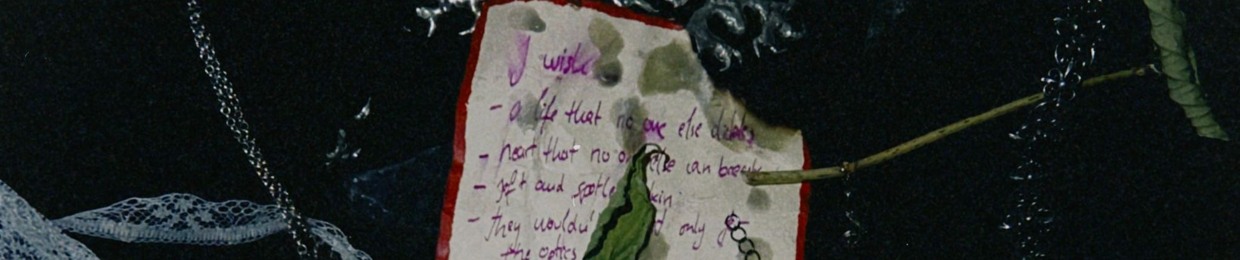 I wish
- a life that no one else
- heart that no else can break
- soft and spotle skin
- they wouldn' only
the optics